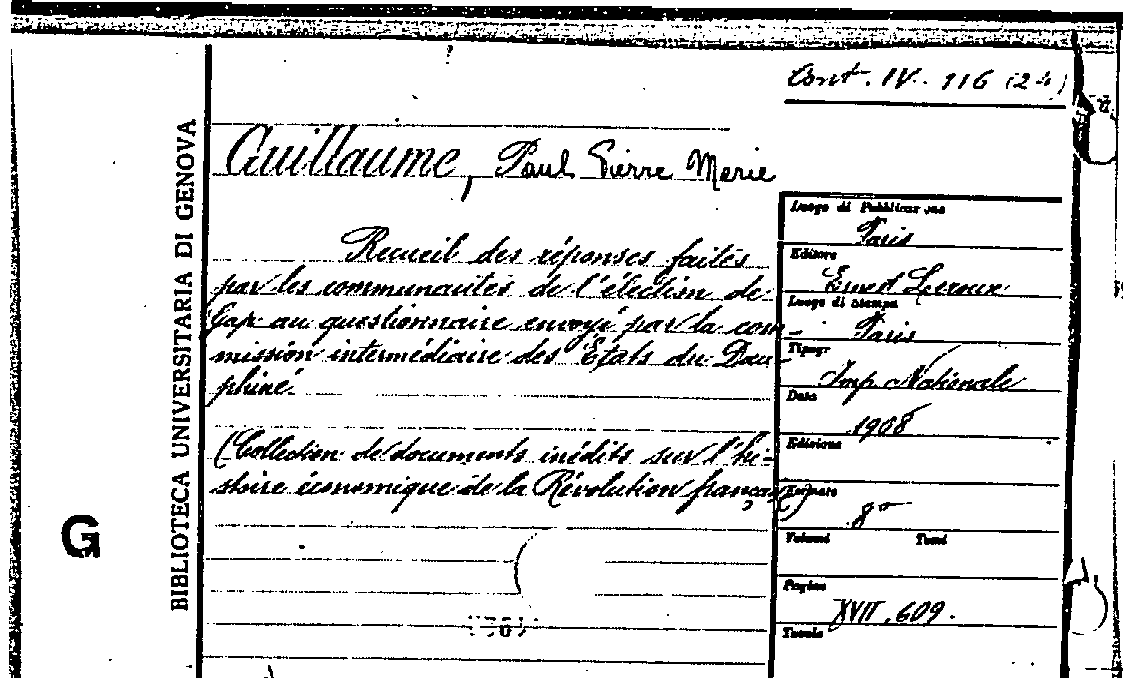 Cont. IV. 116 (24)
Guillaume, Paul Pierre Marie
Recueil des réponses faites
par les communautés de l'élection de
Gap au questionnaire envoyé par la com-
mission intermédiaire des États du Dau-
phiné.
(Collection de documents inédits sur l'hi-
stoire économique de la Révolution française)
Luogo di Pubblicazione
Paris
Editore
Ernest Leroux
Luogo di stampa
Paris
Tipogr
Imp. Nationale
Data
1908
Edizione
Formato
8°
Volumi Tomi
Pagine
XVII, 609.
Tavole
BIBLIOTECA UNIVERSITARIA DI GENOVA
G